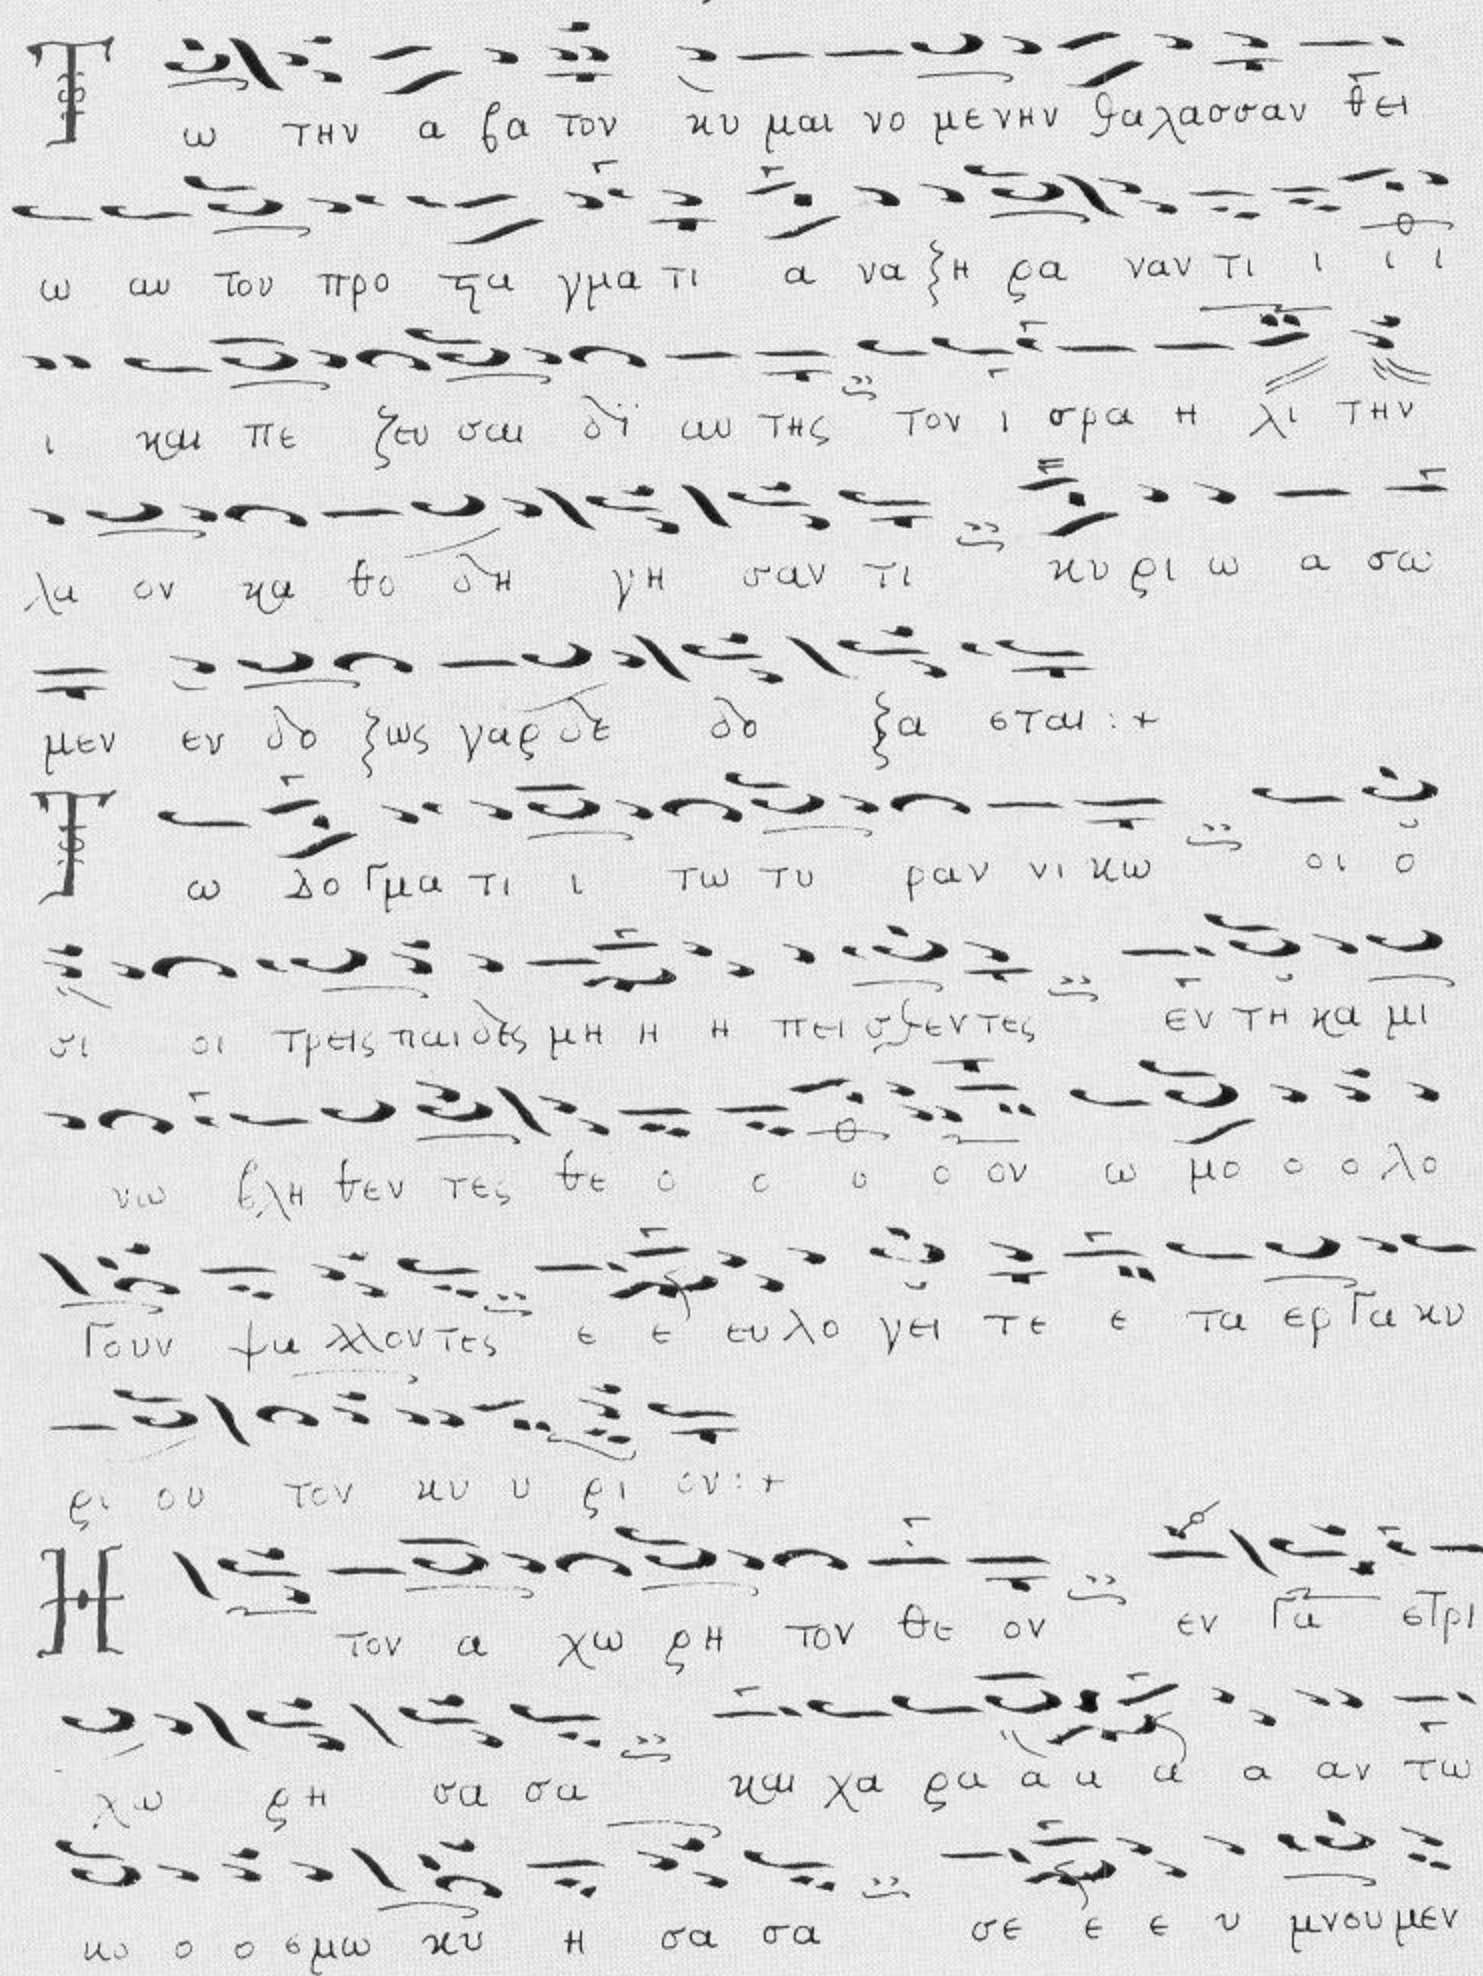 Τ ω την α βα τον κυ μαι νο μενην θαλασσαν θει
ω αυ του προ στα γμα τι α να ξη ρα ναν τι ι ι ι
ι και πε ζευ σαι δϊ αυ της τον ι σρα η λι την
λα ον κα θο δη γη σαν τι κυ ρι ω α σω
μεν εν δο ξως γαρ δε δο ξα σται :+
Τ ω δο γμα τι ι τω τυ ραν νι κω οι ο
σι οι τρεις παιδες μη η η πει σθεντες εν τη κα μι
νω βλη θεν τες θε ο ο ο ο ον ω μο ο ο λο
γουν ψα λλοντες ε ε ευ λο γει τε ε τα ερ γα κυ
ρι ου τον κυ υ ρι ον :+
Η τον α χω ρη τον θε ον εν γα στρι
χω ρη σα σα και χα ρα α α α α αν τω
κο ο ο σμω κυ η σα σα σε ε ε υ μνουμεν